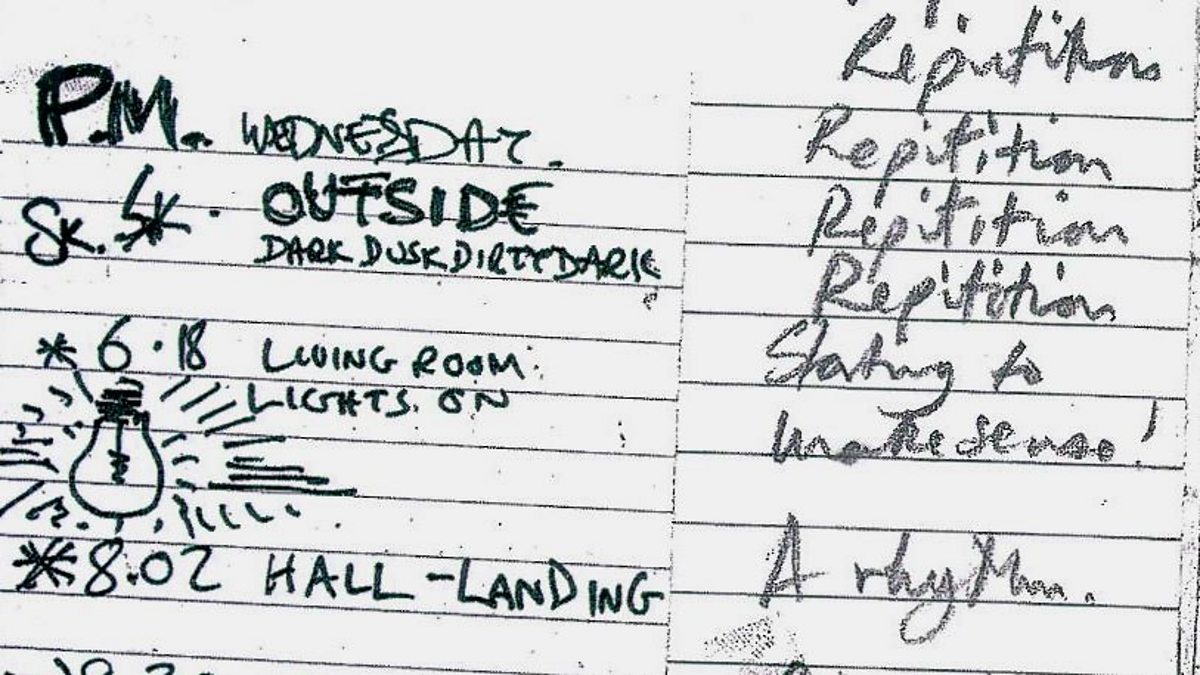 P.M. WEDNESDAY.
SK. SK. OUTSIDE
DARK DUSK DIRTY DARK
* 6.18 LIVING ROOM
LIGHTS. ON
* 8.02 HALL - LANDING
Repitition
Repitition
Repitition
Repitition
Starting to
make sense!
A rhythm.